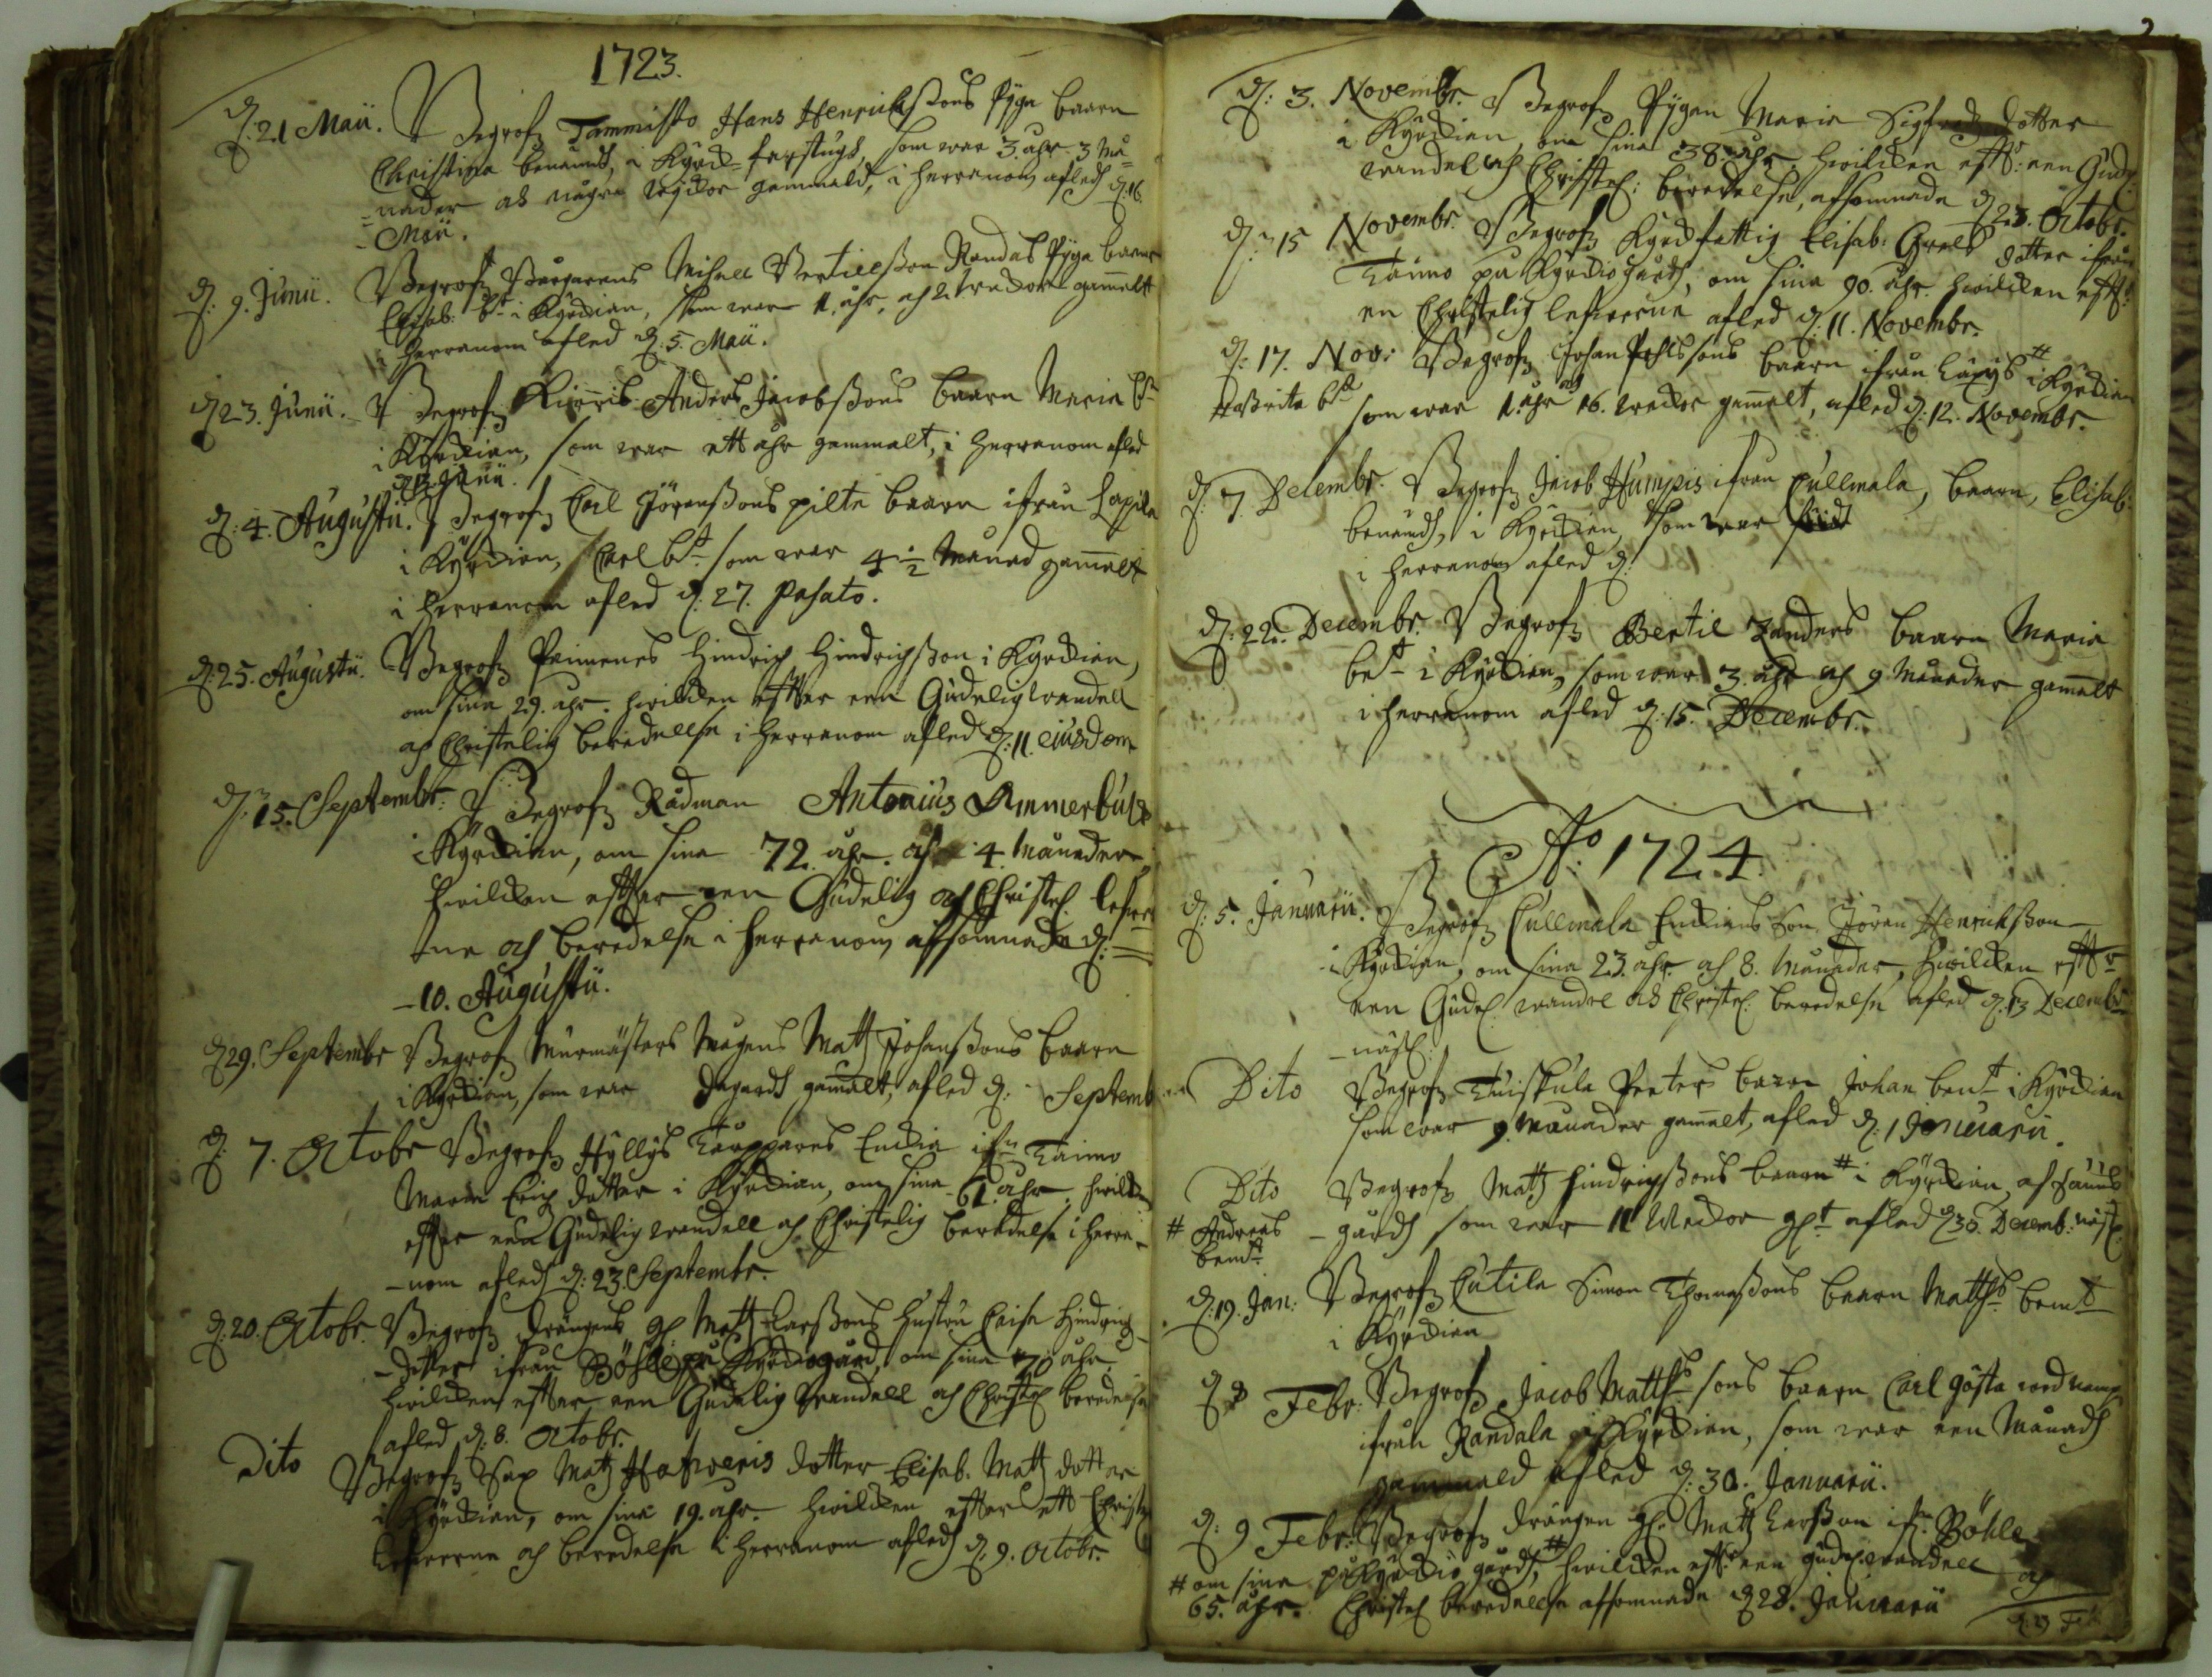 1723.
d. 21 Maii. Begrofz Tammisto Hans Henrichssons Pyga baarn
Christina benämnd, i Kyrck- som war 3. åhr 3 Må-
nader och några weckor gammald, i herranom afled d. 16.
Maii.
d. 9. Junii. Begrofz Borgarens Michell Bertillsson Randas Pyga baarn
Elisab: bt i Kyrckian, som war 1. åhr, och 2 weckor gamalt
i herranom afled d. 5. Maii.
d. 23. Junii. Begrofz Kinris Anders Jacobssons baarn Maria bt
i Kyrckian, som war ett åhr gammalt, i herranom afled
Junii.
d. 4. Augustii. Begrofz Carl Jöranssons pilte baarn ifrån Lapila
i Kyrckian, Carl bt som war 4 1/2 Månad gamalt
i herranom afled d. 27. Passato.
d. 25. Augustii. Begrofz Hindrich Hindrichsson i Kyrckian,
om sina 29. åhr. hwilcken effter een Gudelig wandell
och Christelig beredellse i herranom afled d. 11. eiusdem
d. 15. Septembr: Begrofz Rådman Antonius Ammerbusk
i Kyrckian, om sina 72. åhr. och 4. Månader
hwilcken effter een Gudelig och Christel. lefwer-
ne och beredelse i herranom affsomnade d.
10. Augustii.
d. 29. Septembr Begrofz Murmästers Mågens Matz Johanssons baarn
i Kyrckian, som war dagard gamalt, afled d. Septemb
d. 7. Octobr Begrofz Hyllys Enckia ifn Taimo
Maria Erichz dotter i Kyrckian, om sina 61. åhr. hwilcken
effter een Gudelig wandell och Christelig beredelse i herra-
nom afled d. 23. Septembr.
d. 20. Octobr. Begrofz drängens gl. Matz Larssons hustru Caisa Hindrich
dotter ifrån Böhle på Kyrckogård, om sina 70 åhr.
hwilcken effter een Gudelig wandell och Christel beredelse
afled d. 8. Octobr.
Dito Begrofz Matz dotter Elisab. Matz dotter
i Kyrckian, om sina 19. åhr. hwilcken effter ett Christel
Lefwerne och beredelse i herranom afled d. 9. Octobr.
d. 3. Novembr. Begrofz Pygan Maria Sigfredz dotter
i Kyrckian, om sina 38. åhr. hwilcken efft: een Gud:
wandel och Christel: beredelse, afsomnade d. 23. Octobr.
d. 15 Novembr. Begrofz Kyrckfattig Elisab: Grels dotter ifrån
Taimo på Kyrckiogård, om sina 90. åhr. hwilcken efft:
en Christelig lefwerne afled d. 11. Novembr.
d. 17. Nov: Begrofz Johan Pohlssons baarn ifrån # i Kyrckian
# bt som war 1. åhr och 16. weckor gamalt, afled d. 12. Novembr.
d. 7. Decembr. Begrofz Jacob Humpis ifrån Cullmala, baarn, Elisab:
benämd, i Kyrckian, som war
i herranom afled d.
d. 22. Decembr. Begrofz Bertil Zanders baarn Maria
bt i Kyrckian, som war 3. åhr och 9 Månader gamalt
i herranom afled d. 15. Decembr.
Ao: 1724.
d. 5. Januarii. Begrofz Cullmala Enckians Son Jöran Henrichsson
i Kyrckian, om sina 23. åhr. och 8. Månader, hwilcken efftr
een Gudel. wandel och Christel. beredelse afled d. 13 Decembr
näsl:
Dito Begrofz Tuiskula Peters baarn Johan bent i Kyrckian
som war 9. Månader gamalt, afled d. 1 Januarii.
Dito Begrofz Matz Hindrichssons baarn # i Kyrckian, af
# Andreas
bemt
gård som war 11 weckor glt afled d. 30. Decemb: näsl.
d. 19. Jan: Begrofz Cutila Simon Thomassons baarn Matths bemt
i Kyrckian
d. Febr: Begrofz Jacob Matths sons baarn Carl Gösta
ifrån Randala i Kyrckian, som war een Månad
gammald afled d. 30. Januarii.
d. 9 Febr. Begrofz drängen gl. Matz Larsson ifn Böhle
# om sina
65. åhr.
på Kyrckio gård, # hwilcken efftr een gudel. wandell och
Christel beredellse afsomnade d. 28. Januarii